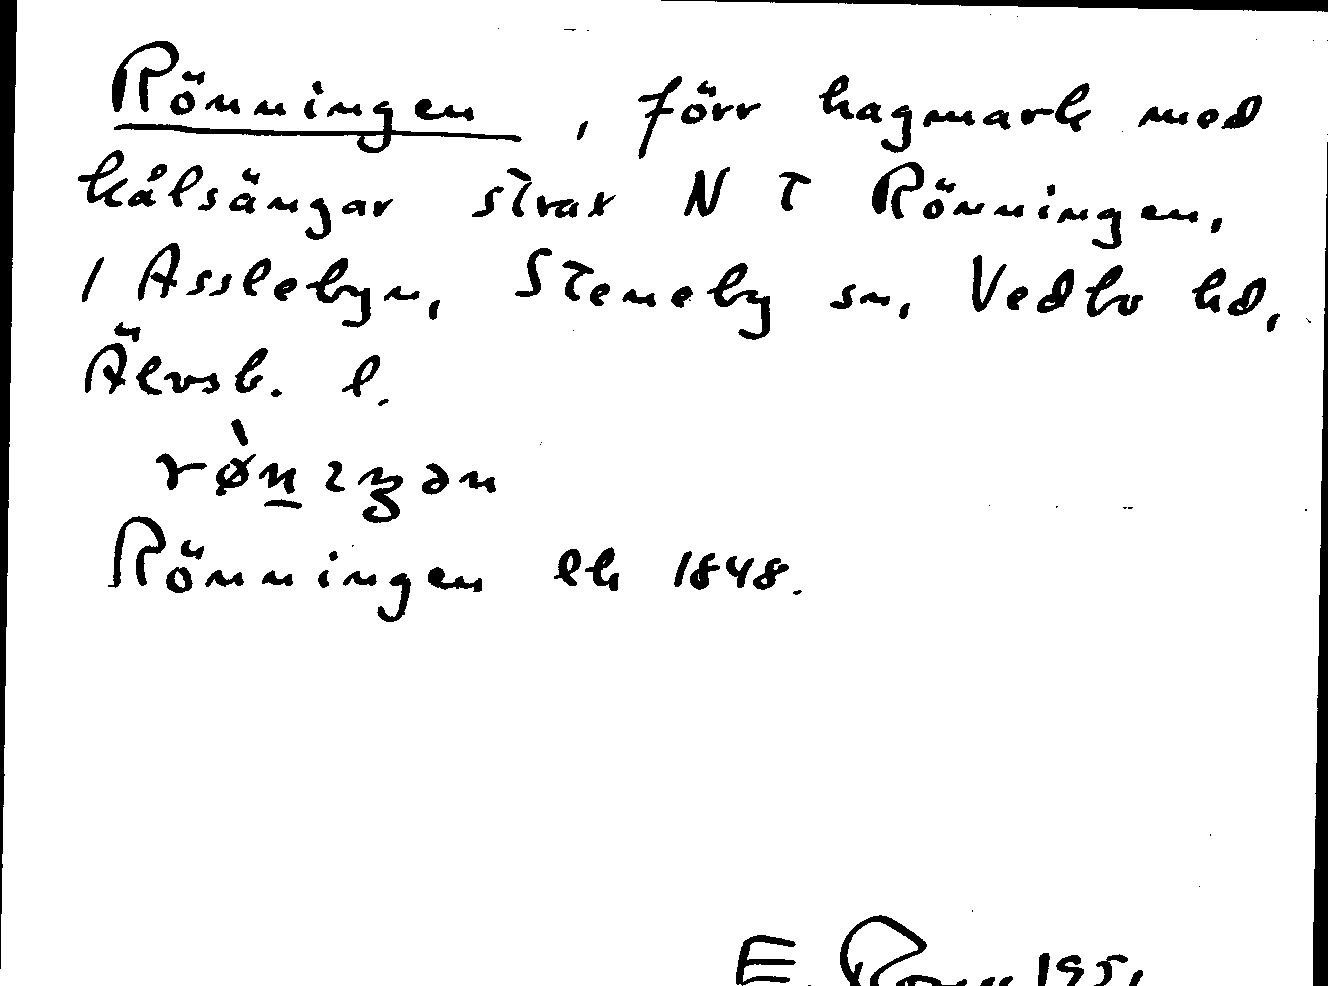 Rönningen, förr hagmark med
kålsängar strax N T Rönningen,
1 Asslebyn, Steneby sn, Vedbo hd,
Älvsb. l.
Rönningen lh 1848.
E.